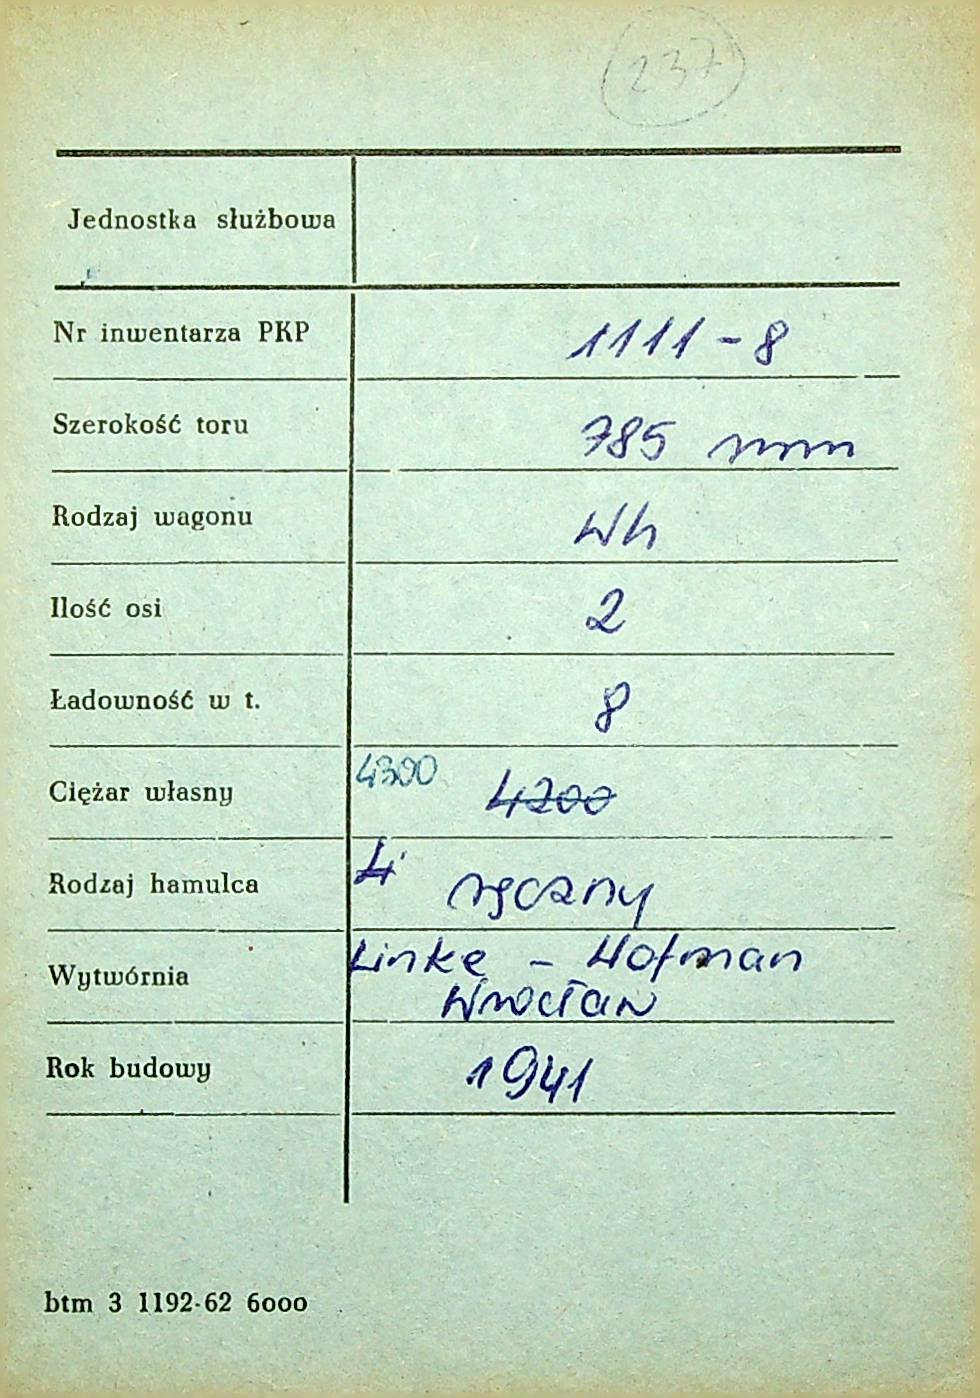 237
Jednostka służbowa
Nr inwentarza PKP 1111-8
Szerokość toru 785 mm
Rodzaj wagonu Wh
Ilość osi 2
Ładowność w t. 8
Ciężar własny 4300 4200
Rodzaj hamulca ręczny
Wytwórnia Linke - Hofman
Wrocław
Rok budowy 1941
btm 3 1192-62 6000